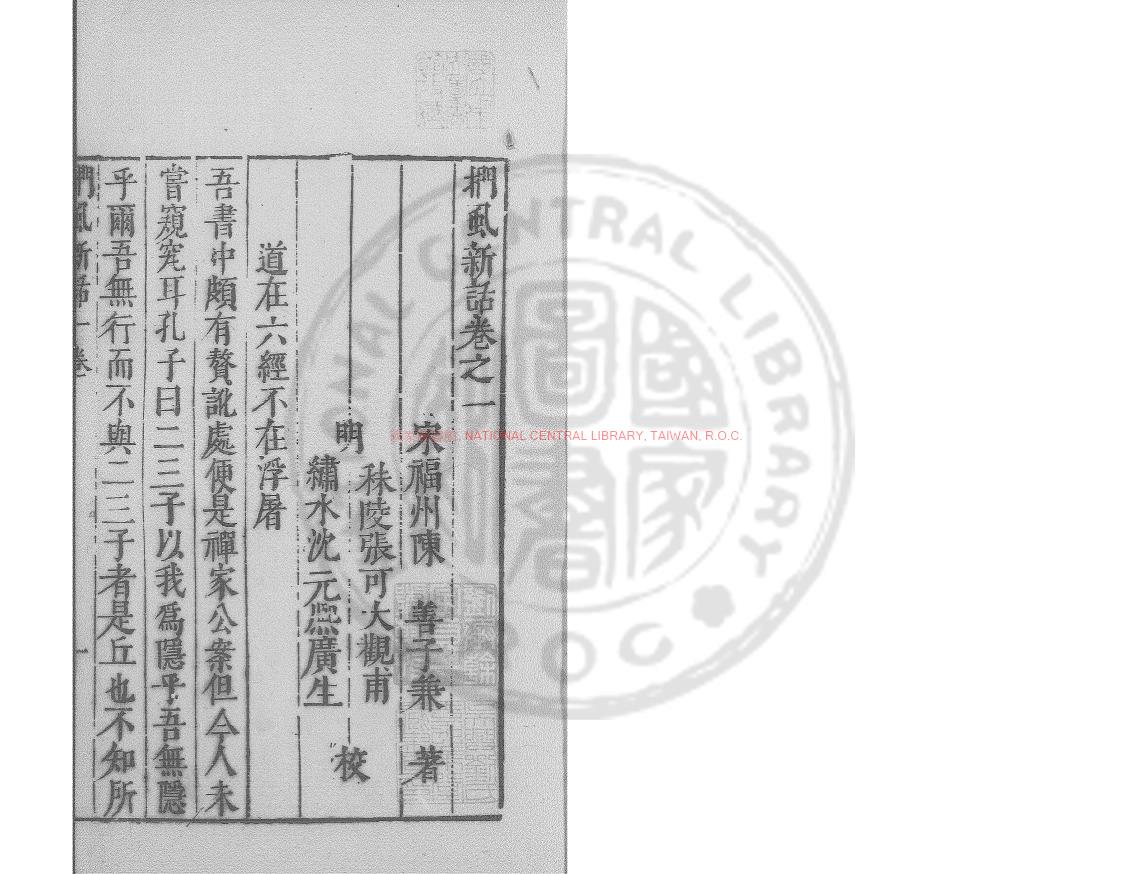 捫虱新話卷之一
宋福州陳　善子兼　著
秣陵張可大觀甫
明　　　　　校
繡水沈元熈廣生
道在六經不在浮屠
吾書中頗有贅訛處便是禪家公案但今人未
嘗窺究耳孔子曰二三子以我爲隱乎吾無隱
乎爾吾無行而不與二三子者是丘也不知所
捫虱新話一卷　一
NATIONAL CENTRAL LIBRARY, TAIWAN, R.O.C.
NATIONAL CENTRAL LIBRARY
ROC